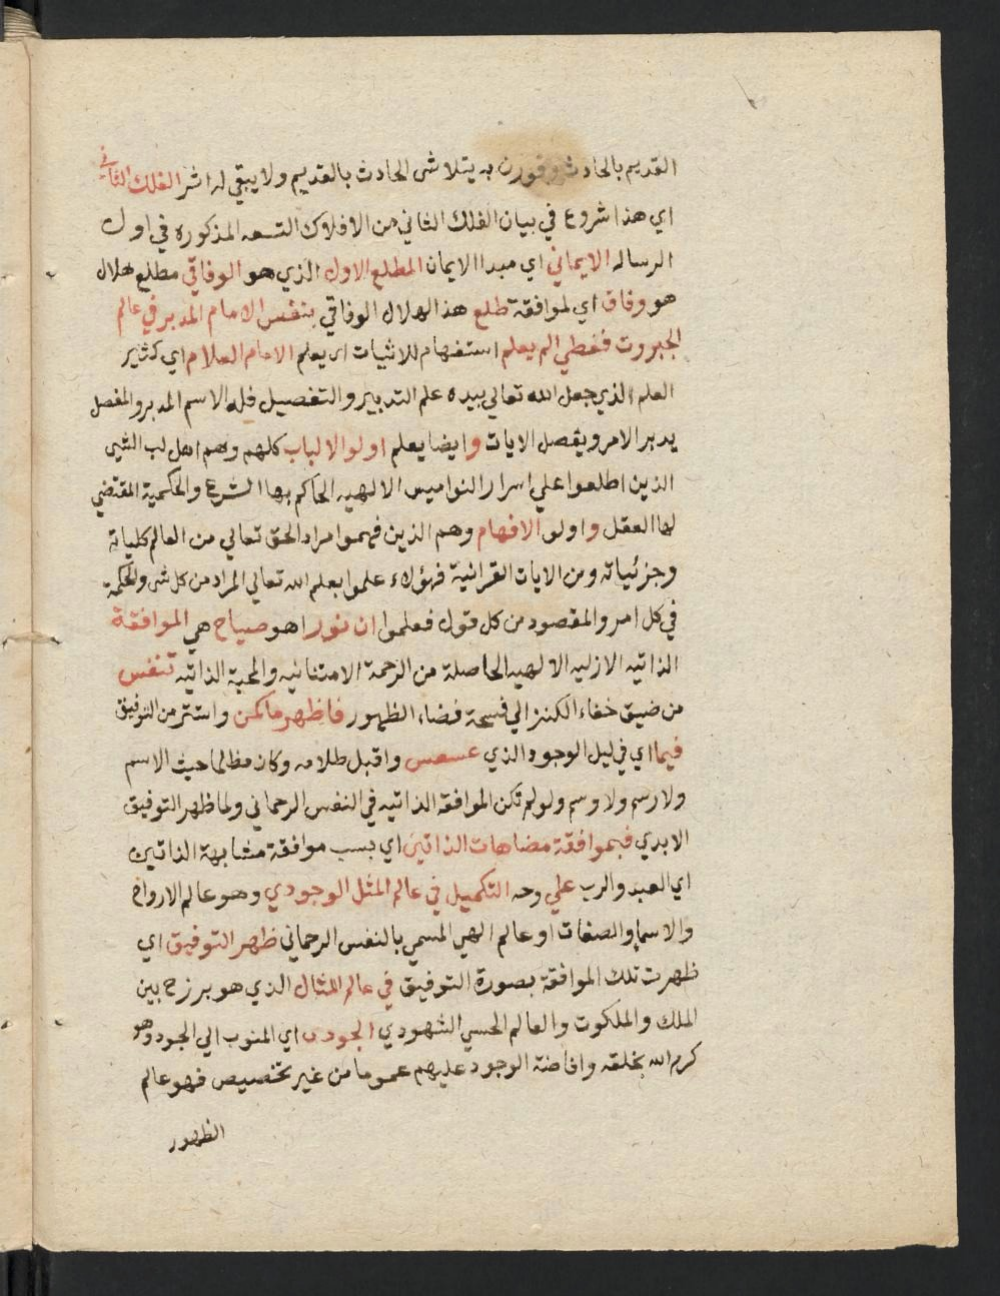 القديم بالحادث وقورن به يتلاشى الحادث بالقديم ولا يبقي له اثر الفلك الثاني
اي هذا شروع في بيان الفلك الثاني من الافلاك التسعه المذكوره في اول
الرساله الايماني اي مبدا الايمان المطلع الاول الذي هو الوفاقي مطلع هلال
هو وفاق اي لموافقة طلع هذا الهلال الوفاقي بنفس الامام المدبر في عالم
الجبروت فغطي الم يعلم استفهام للاثبات اي يعلم الامام العلام اي كثير
العلم الذي جعل الله تعالي بيده علم التدبير والتفصيل فله الاسم المدبر والمفصل
يدبر الامر ويفصل الايات وايضا يعلم اولو الالباب كلهم وهم اهل لب الشي
الذين اطلعوا علي اسرار النواميس الالهيه الحاكم بها الشرع والحكمية المقتضي
لها العقل واولو الافهام وهم الذين فهموا مراد الحق تعالي من العالم كلياته
وجزئياته ومن الايات القرانية فهؤلاء علموا بعلم الله تعالي المراد من كل شي والحكمة
في كل امر والمقصود من كل قول فعلموا ان نورا هو صباح هي الموافقة
الذاتيه الازليه الالهيه الحاصلة من الرحمة الامتنانيه والمحبة الذاتيه تنفس
من ضيق خفاء الكنز الي فسحة فضاء الظهور فاظهر ماكمن واستتر من التوفيق
فيما اي في ليل الوجود الذي عسعس واقبل ظلامه وكان مظلما حيث الاسم
ولا رسم ولا وسم ولو لم تكن الموافقه الذاتيه في النفس الرحماني ولما ظهر التوفيق
الابدي فبموافقة مضاهات الذاتين اي بسبب موافقة مشابهة الذاتين
اي العبد والرب علي وجه التكميل في عالم المثل الوجودي وهو عالم الارواح
والاسما والصفات او عالم الهي المسمي بالنفس الرحماني ظهر التوفيق اي
ظهرت تلك الموافقة بصورة التوفيق في عالم المثال الذي هو برزخ بين
الملك والملكوت والعالم الحسي الشهودي الجودي اي المنوب الي الجود وهو
كرم الله بخلقه وافاضة الوجود عليهم عموما من غير تخصيص فهو عالم
الظهور